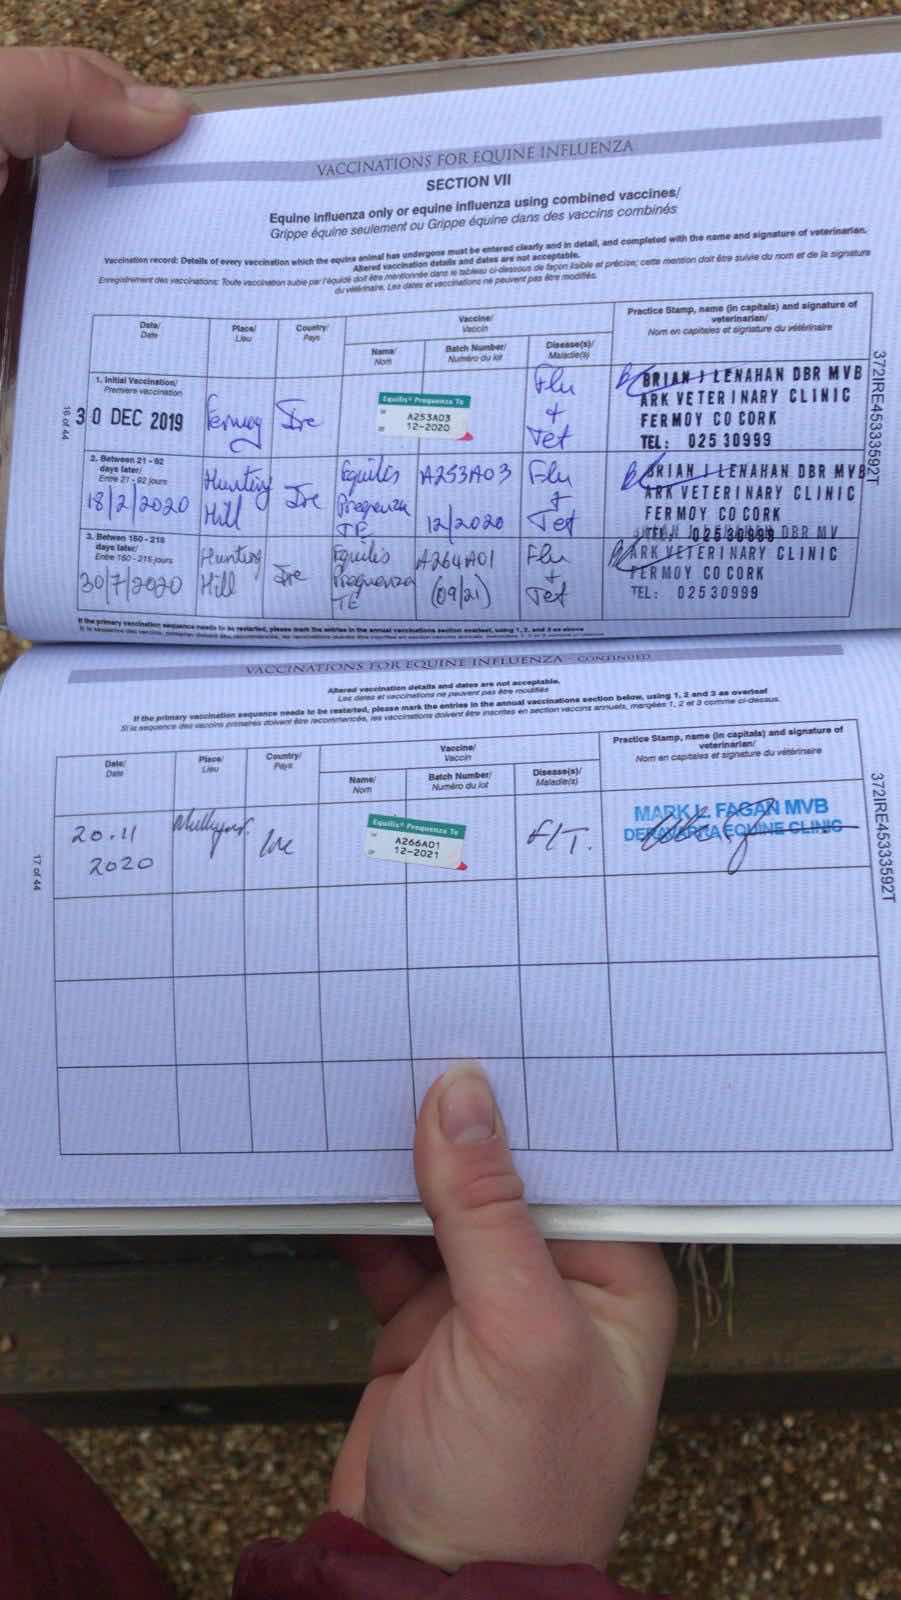 VACCINATIONS FOR EQUINE INFLUENZA
SECTION VII
Equine influenza only or equine influenza using combined vaccines/
Grippe équine seulement ou Grippe équine dans des vaccins combinés
Vaccination record: Details of every vaccination which the equine animal has undergone must be entered clearly and in detail, and completed with the name and signature of veterinarian.
Altered vaccination details and dates are not acceptable.
Enregistrement des vaccinations: Toute vaccination subie par l'équidé doit être mentionnée dans le tableau ci-dessous de façon lisible et précise; cette mention doit être suivie du nom et de la signature
du vétérinaire. Les dates et vaccinations ne peuvent pas être modifiés.
Date/
Date
Place/
Lieu
Country/
Pays
Vaccine/
Vaccin
Name/
Nom
Batch Number/
Numéro du lot
Disease(s)/
Maladie(s)
Practice Stamp, name (in capitals) and signature of
veterinarian/
Nom en capitales et signature du vétérinaire
1. Initial Vaccination/
Première vaccination
30 DEC 2019
Fermoy
Ire
Equilis® Prequenza Te
A253A03
12-2020
Flu
+
Tet
BRIAN J LENAHAN DBR MVB
ARK VETERINARY CLINIC
FERMOY CO CORK
TEL: 025 30999
2. Between 21 - 92
days later/
Entre 21 - 92 jours
18/2/2020
Hunting
Hill
Ire
Equilis
Prequenza
TE
A253A03
12/2020
Flu
+
Tet
BRIAN J LENAHAN DBR MVB
ARK VETERINARY CLINIC
FERMOY CO CORK
TEL: 025 30999
3. Betwen 150 - 215
days later/
Entre 150 - 215 jours
30/7/2020
Hunting
Hill
Ire
Equilis
Prequenza
TE
A264A01
(09/21)
Flu
+
Tet
BRIAN J LENAHAN DBR MV
ARK VETERINARY CLINIC
FERMOY CO CORK
TEL: 025 30999
If the primary vaccination sequence needs to be restarted, please mark the entries in the annual vaccinations section overleaf, using 1, 2, and 3 as above
16 of 44
372IRE45333592T
VACCINATIONS FOR EQUINE INFLUENZA - CONTINUED
Altered vaccination details and dates are not acceptable.
Les dates et vaccinations ne peuvent pas être modifiés
If the primary vaccination sequence needs to be restarted, please mark the entries in the annual vaccinations section below, using 1, 2 and 3 as overleaf
Si la séquence des vaccins primaires doivent être recommencée, les vaccinations doivent être inscrites en section vaccins annuels, margées 1, 2 et 3 comme ci-dessus.
Date/
Date
Place/
Lieu
Country/
Pays
Vaccine/
Vaccin
Name/
Nom
Batch Number/
Numéro du lot
Disease(s)/
Maladie(s)
Practice Stamp, name (in capitals) and signature of
veterinarian/
Nom en capitales et signature du vétérinaire
20.11
2020
Ire
Equilis® Prequenza Te
A266A01
12-2021
F/T.
MARK L. FAGAN MVB
DERAVARRA EQUINE CLINIC
17 of 44
372IRE45333592T